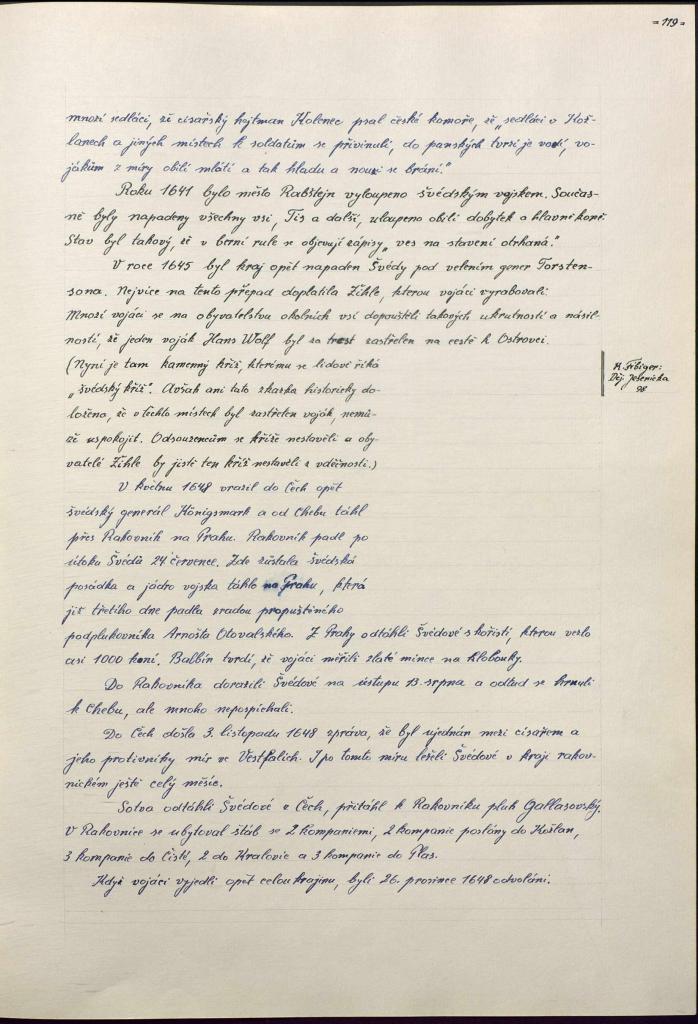 = 119 =
mnozí sedláci, že císařský hejtman Kolenec psal české komoře, že „sedláci v Koš-
lanech a jiných místech k soldatům se přivinuli, do panských tvrzí je vodí, vo-
jákům z míry obilí mlátí a tak hladu a nouzi se brání."
Roku 1641 bylo město Rabštejn vyloupeno švédským vojskem. Součas-
ně byly napadeny všechny vsi, Tis a další, uloupeno obilí dobytek a hlavně koně.
Stav byl takový, že v berní rule se objevují zápisy „ves na stavení otrhaná."
V roce 1645 byl kraj opět napaden Švédy pod velením gener Torsten-
sona. Nejvíce na tento přepad doplatila Žihle, kterou vojáci vyrabovali.
Mnozí vojáci se na obyvatelstvu okolních vsí dopouštěli takových ukrutností a násil-
ností, že jeden voják Hans Wolf byl za trest zastřelen na cestě k Ostrovci.
(Nyní je tam kamenný kříž, kterému se lidově říká
„švédský kříž". Avšak ani tato zkazka historicky do-
ložena, že v těchto místech byl zastřelen voják, nemů-
že uspokojit. Odsouzencům se kříže nestavěli a oby-
vatelé Žihle by jistě ten kříž nestavěli z vděčnosti.)
R. Fibiger:
Děj. Jesenicka
98
V květnu 1648 vrazil do Čech opět
švédský generál Königsmark a od Chebu táhl
přes Rakovník na Prahu. Rakovník padl po
útoku Švédů 24 července. Zde zůstala švédská
posádka a jádro vojska táhlo na Prahu, která
již třetího dne padla zradou propuštěného
podplukovníka Arnošta Otovalského. Z Prahy odtáhli Švédové s kořistí, kterou vezlo
asi 1000 koní. Balbín tvrdí, že vojáci měřili zlaté mince na klobouky.
Do Rakovníka dorazili Švédové na ústupu 13. srpna a odtud se hrnuli
k Chebu, ale mnoho nepospíchali.
Do Čech došla 3. listopadu 1648 zpráva, že byl ujednán mezi císařem a
jeho protivníky mír ve Vestfálích. I po tomto míru leželi Švédové v kraji rakov-
nickém ještě celý měsíc.
Sotva odtáhli Švédové z Čech, přitáhl k Rakovníku pluk Gallasovský.
V Rakovnice se ubytoval štáb se 2 kompaniemi, 2 kompanie poslány do Košlan,
3 kompanie do Čisté, 2 do Kralovic a 3 kompanie do Plas.
Když vojáci vyjedli opět celou krajinu, byli 26. prosince 1648 odvoláni.